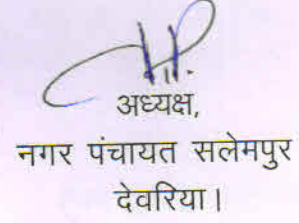 अध्यक्ष,
नगर पंचायत सलेमपुर
देवरिया।